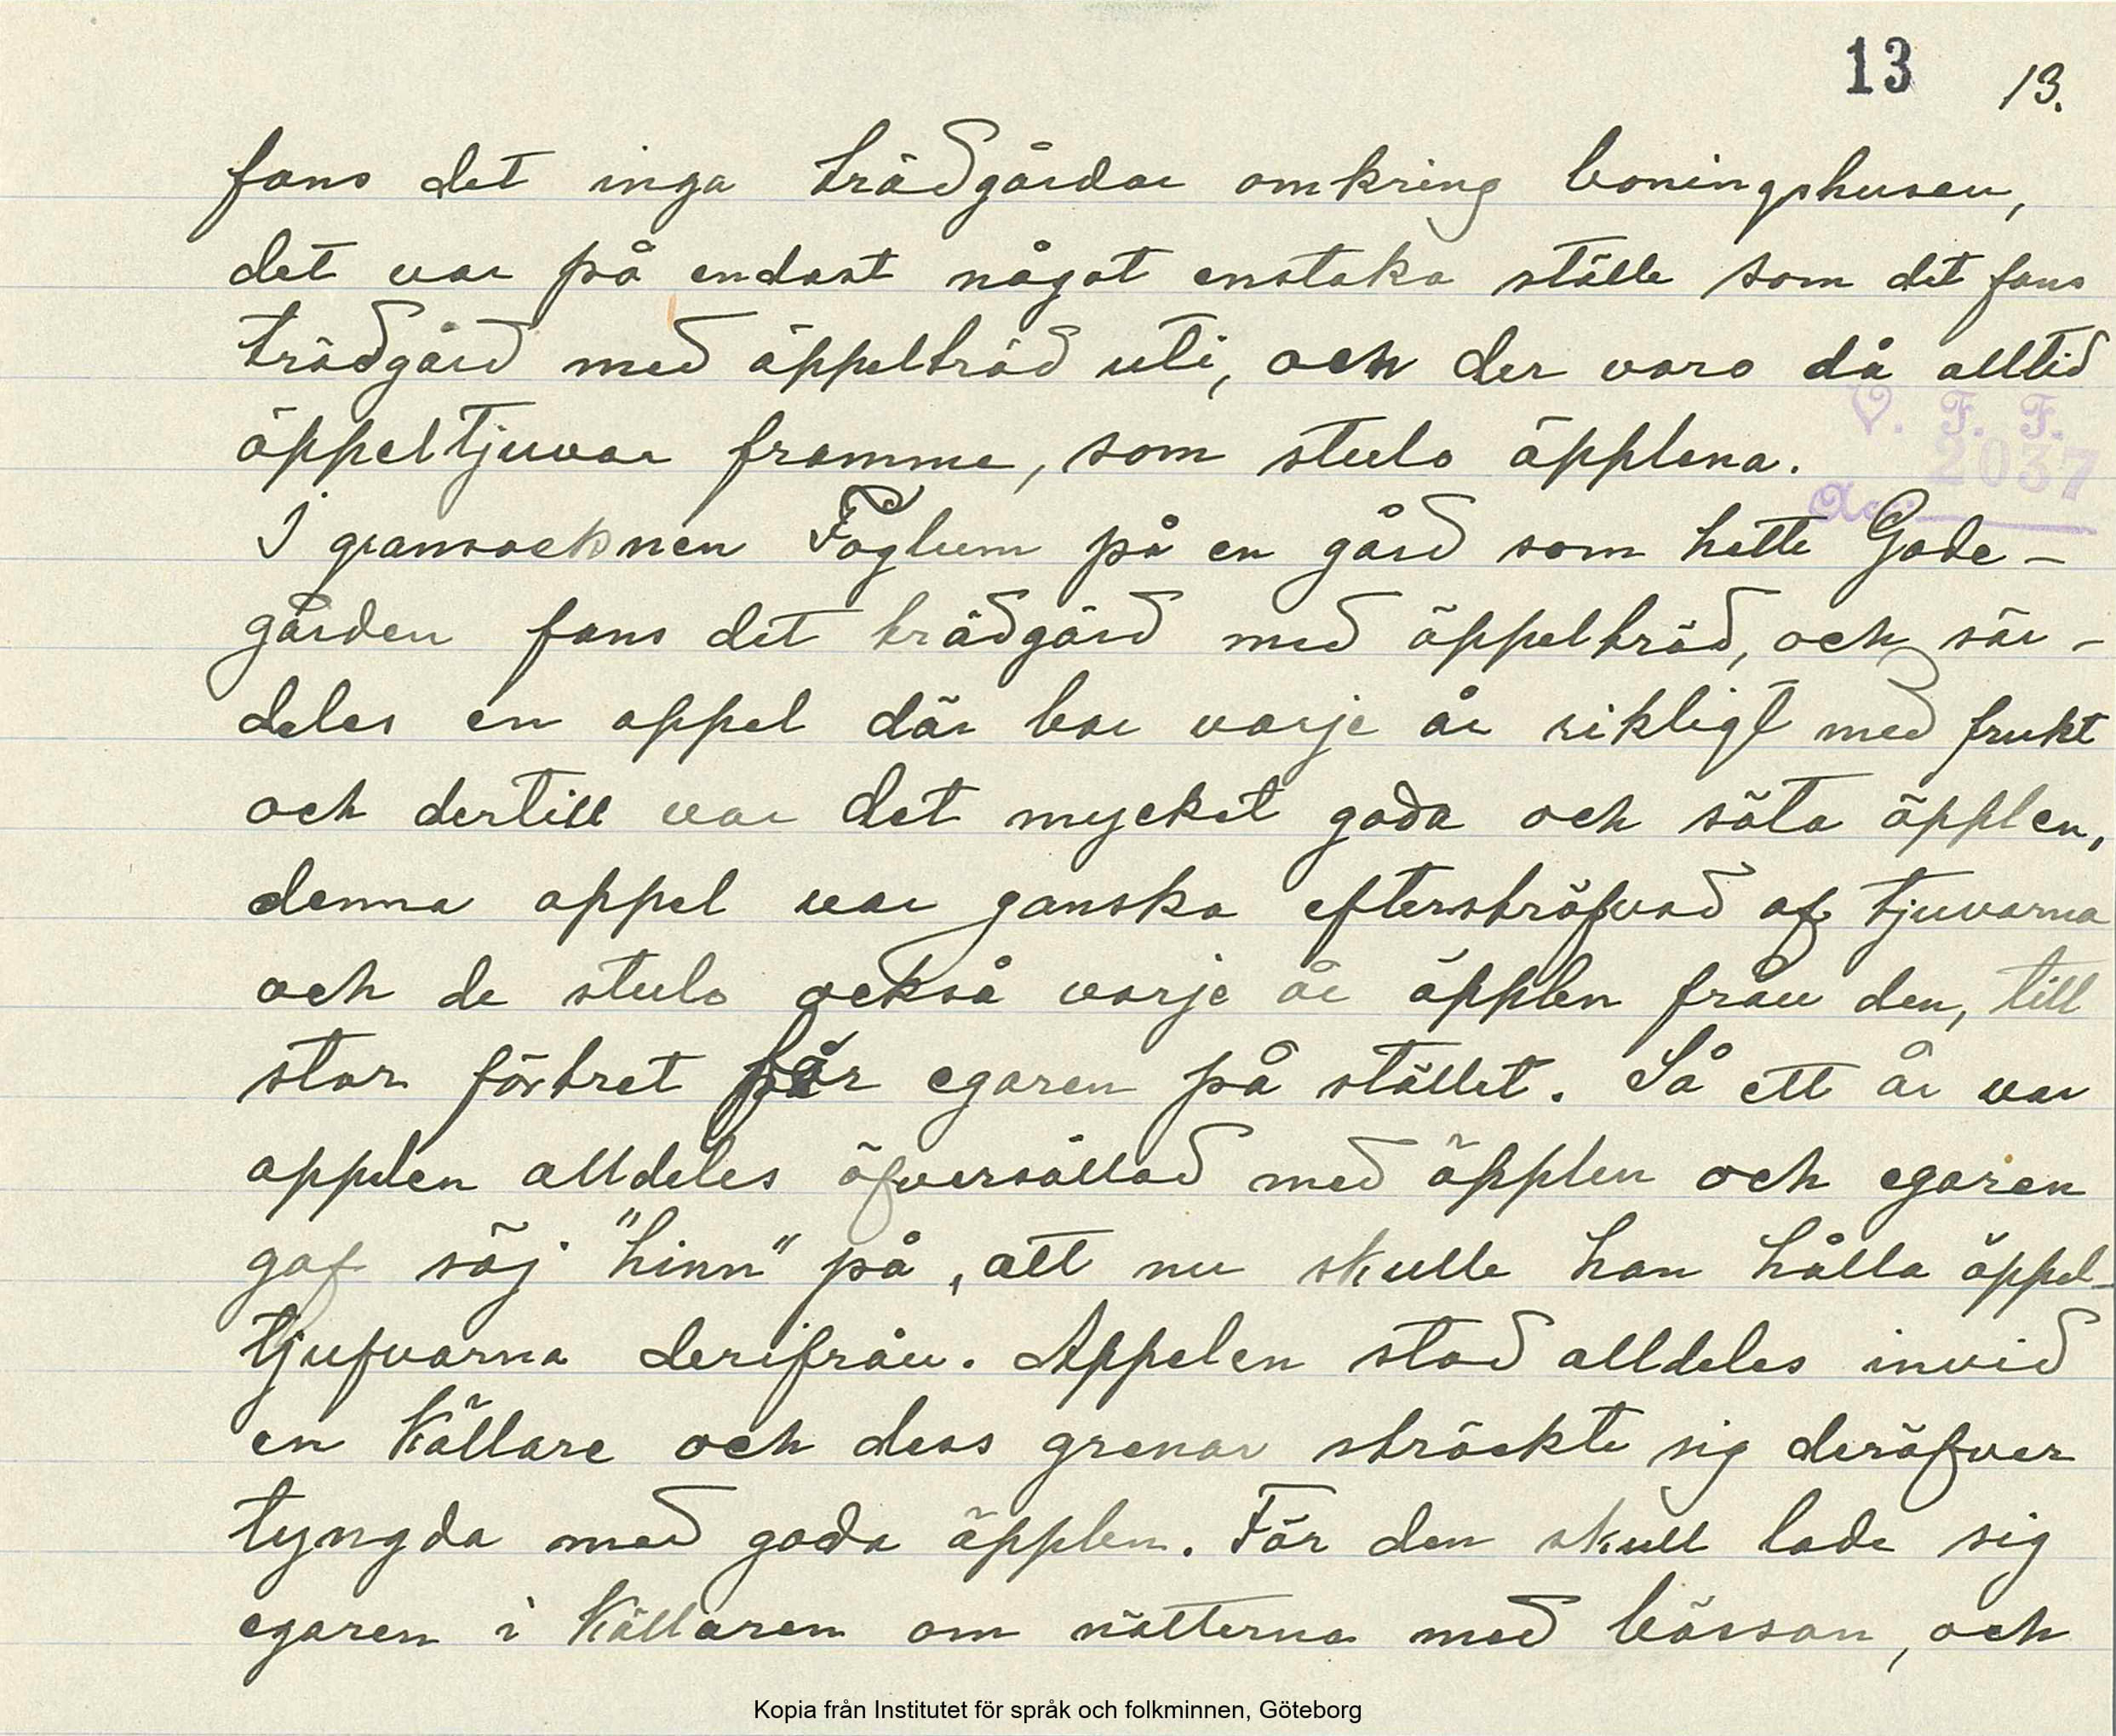 13 13.
fans det inga trädgårdar omkring boningshusen,
det var på endast något enstaka ställe som det fans
trädgård med äppelträd uti, och der voro då alltid
V. F. F.
äppeltjuvar framme, som stulo äpplena.
2037
I gransocknen Foglum på en gård som hette Gode-
gården fans det trädgård med äppelträd, och sär-
deles en appel där bar varje år rikligt med frukt
och dertill var det mycket goda och söta äpplen,
denna appel var ganska eftersträfvad af tjuvarna
och de stulo också varje år äpplen från den, till
stor förtret för egaren på stället. Så ett år var
applen alldeles öfversållad med äpplen och egaren
gaf säj "hinn" på, att nu skulle han hålla äppel-
tjufvarna derifrån. Appelen stod alldeles invid
en källare och dess grenar sträckte sig deröfver
tyngda med goda äpplen. För den skull lade sig
egaren i källaren om nätterna med bössan, och
Kopia från Institutet för språk och folkminnen, Göteborg